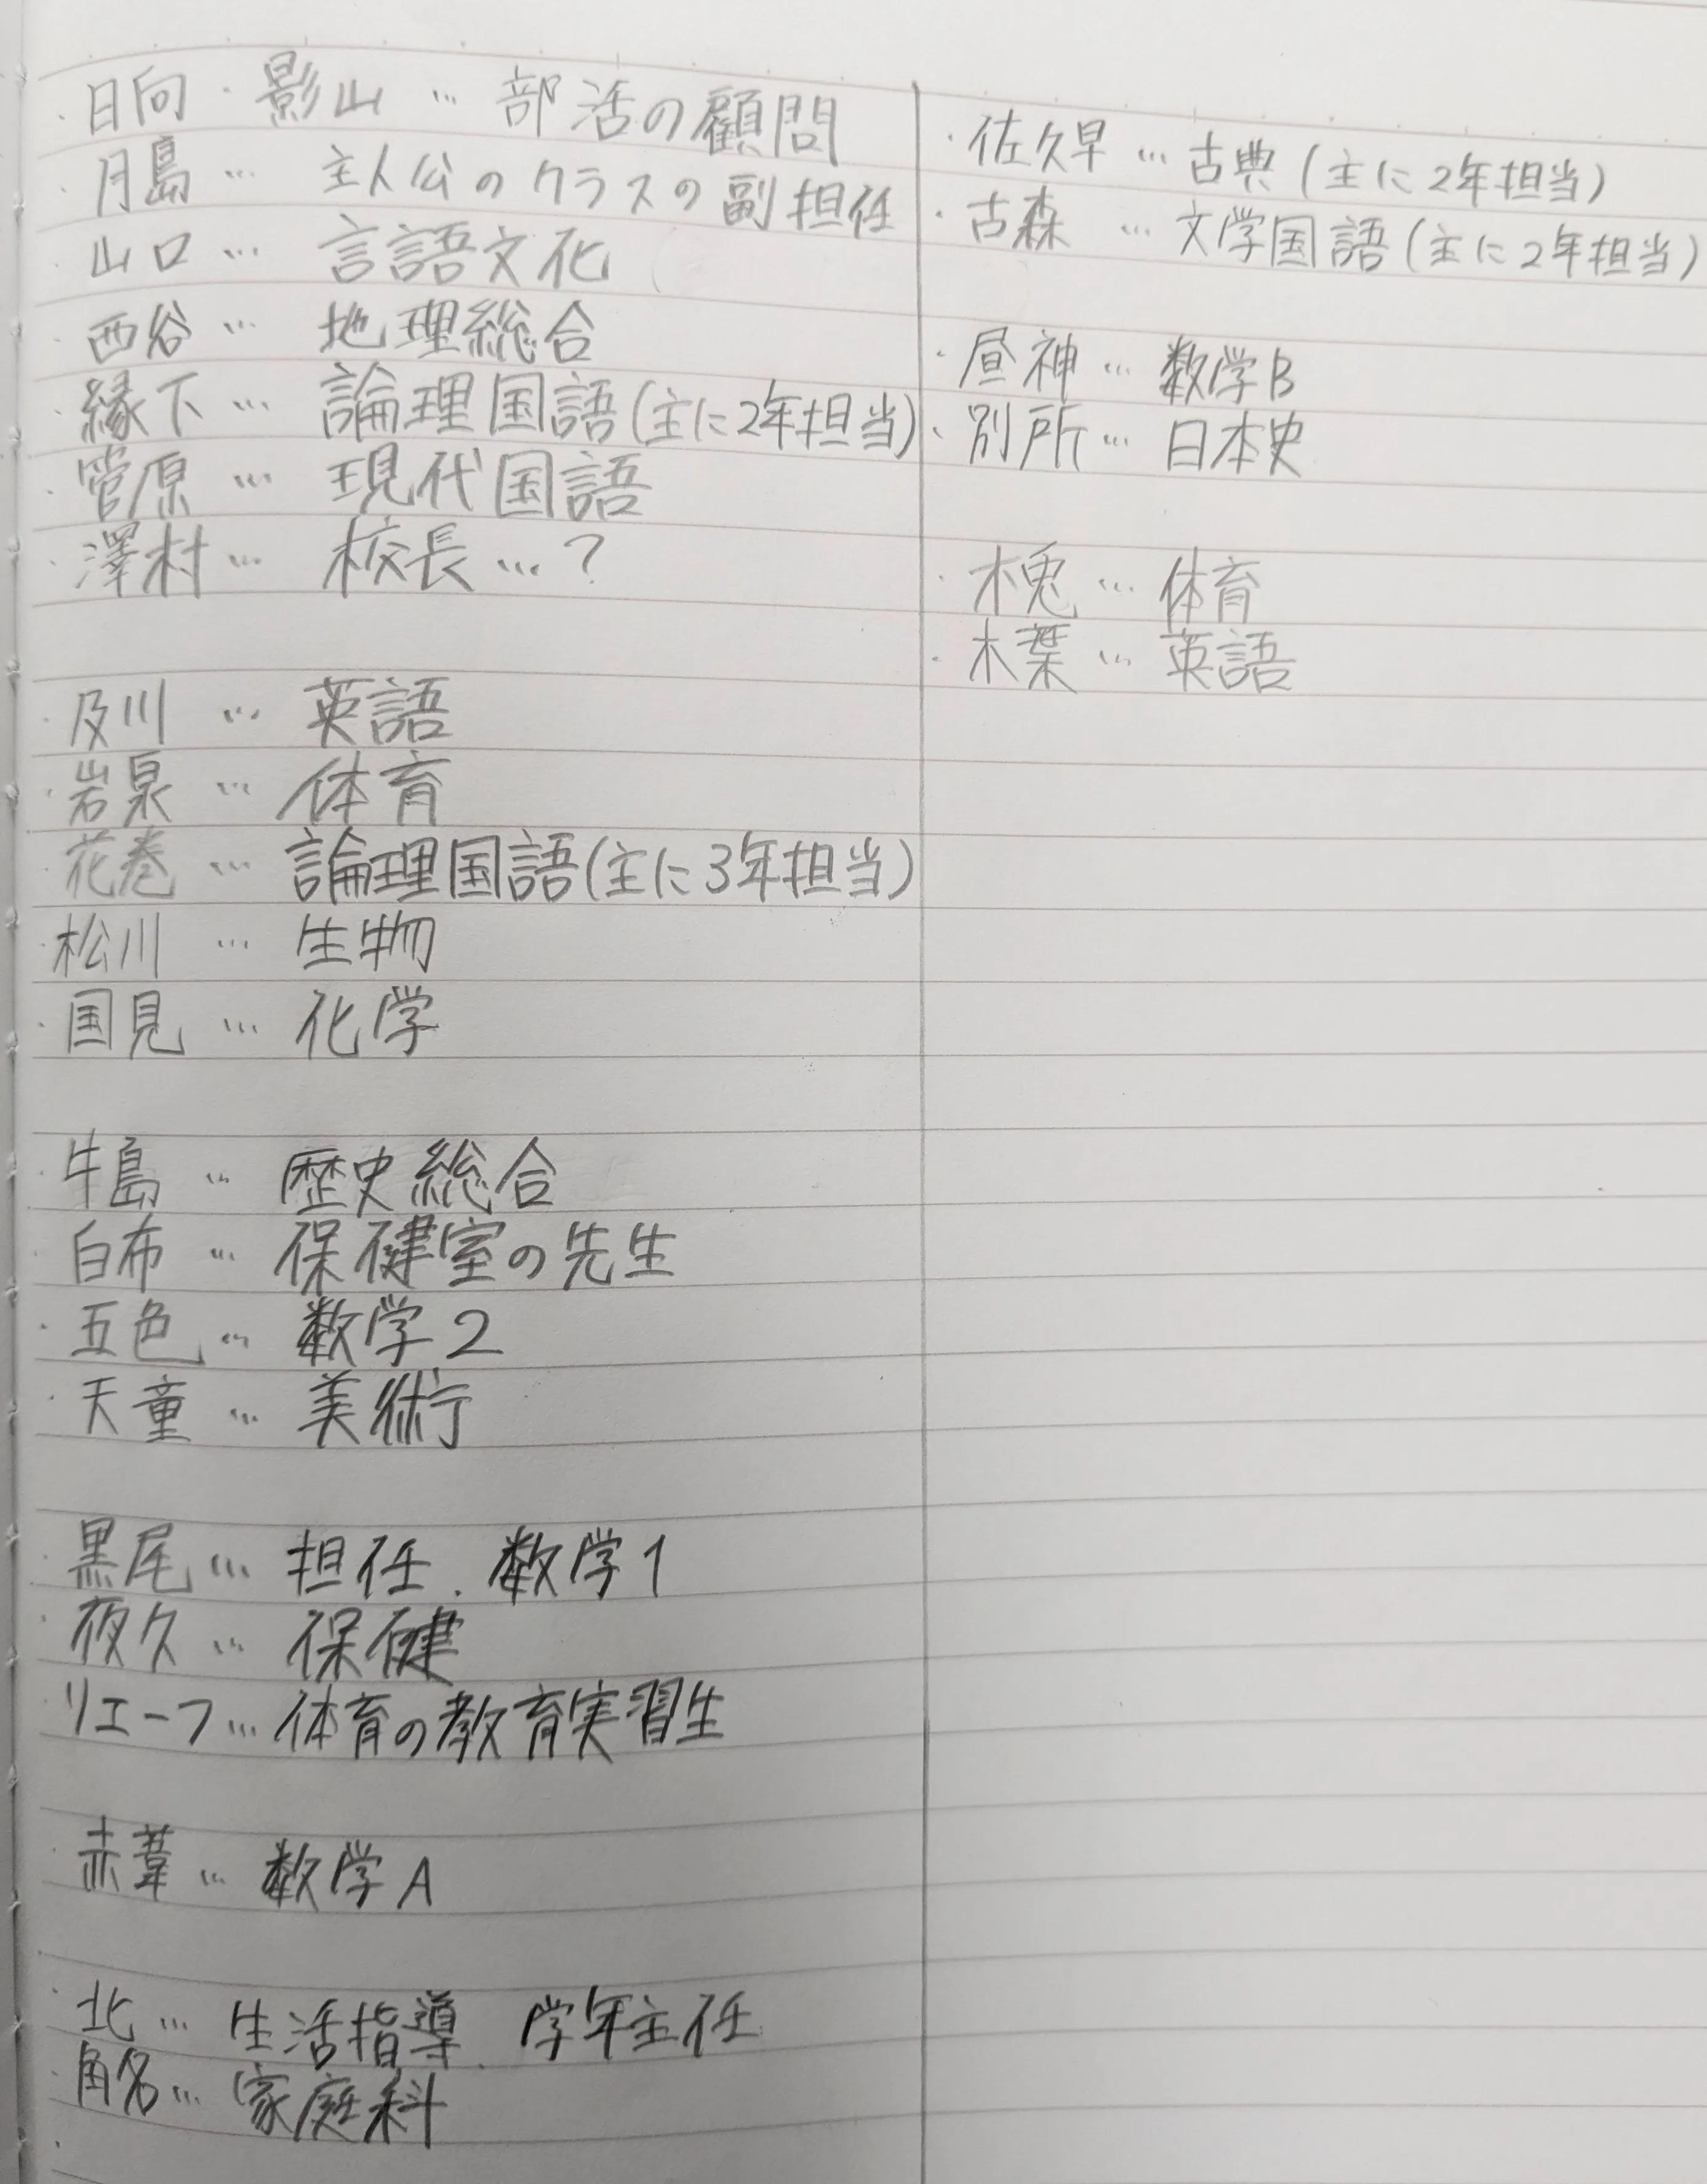 ・日向・影山…部活の顧問
・月島…主人公のクラスの副担任
・山口…言語文化
・西谷…地理総合
・縁下…論理国語(主に2年担当)
・菅原…現代国語
・澤村…校長…?
・及川…英語
・岩泉…体育
・花巻…論理国語(主に3年担当)
・松川…生物
・国見…化学
・牛島…歴史総合
・白布…保健室の先生
・五色…数学2
・天童…美術
・黒尾…担任、数学1
・夜久…保健
・リエーフ…体育の教育実習生
・赤葦…数学A
・北…生活指導、学年主任
・角名…家庭科
・佐久早…古典(主に2年担当)
・古森…文学国語(主に2年担当)
・昼神…数学B
・別所…日本史
・木兎…体育
・木葉…英語